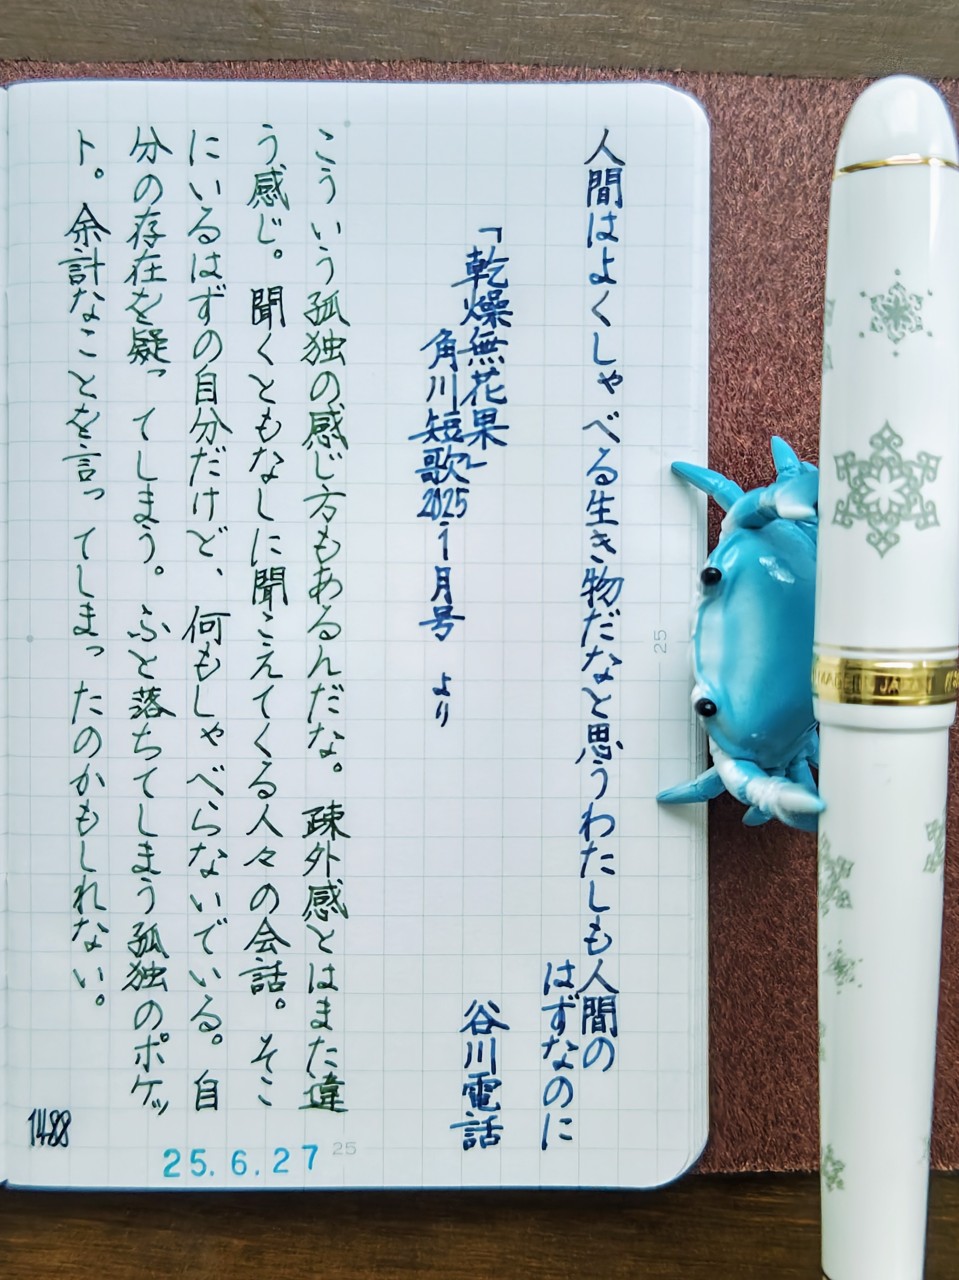 人間はよくしゃべる生き物だなと思うわたしも人間の
はずなのに
「乾燥無花果」
角川短歌2025年1月号 より
谷川電話
こういう孤独の感じ方もあるんだな。疎外感とはまた違
う感じ。聞くともなしに聞こえてくる人々の会話。そこ
にいるはずの自分だけど、何もしゃべらないでいる。自
分の存在を疑ってしまう。ふと落ちてしまう孤独のポケッ
ト。余計なことを言ってしまったのかもしれない。
1488
25.6.27
25
25